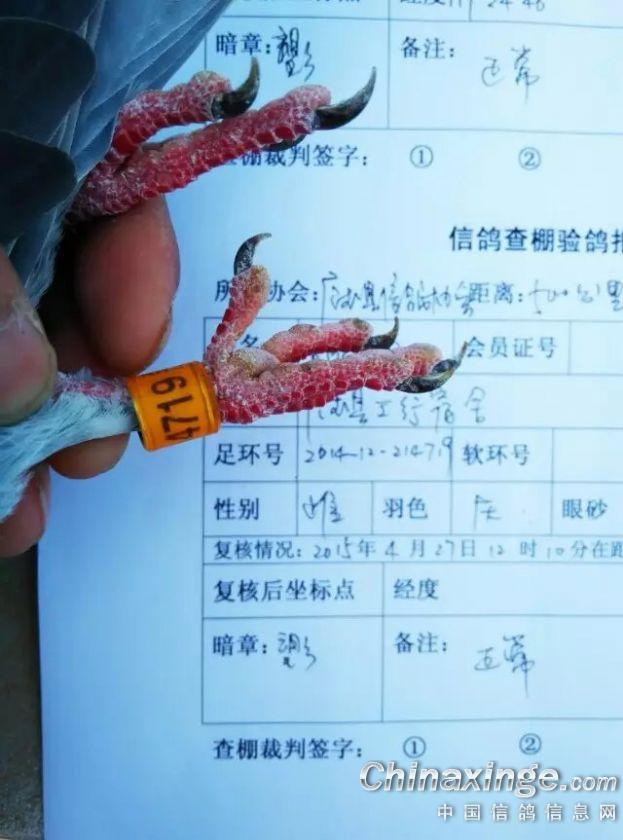 暗章：
备注：
正常
查棚裁判签字： ① ②
信鸽查棚验鸽报
协会： 距离：500公里
名 会员证号
县工行宿舍
足环号 2014-12-214719 软环号
4719
性别 雌 羽色 灰 眼砂
复核情况：2015年4月27日12时10分在距
复核后坐标点 经度
暗章： 备注：
正常
查棚裁判签字： ① ②
Chinaxinge.com
中国信鸽信息网